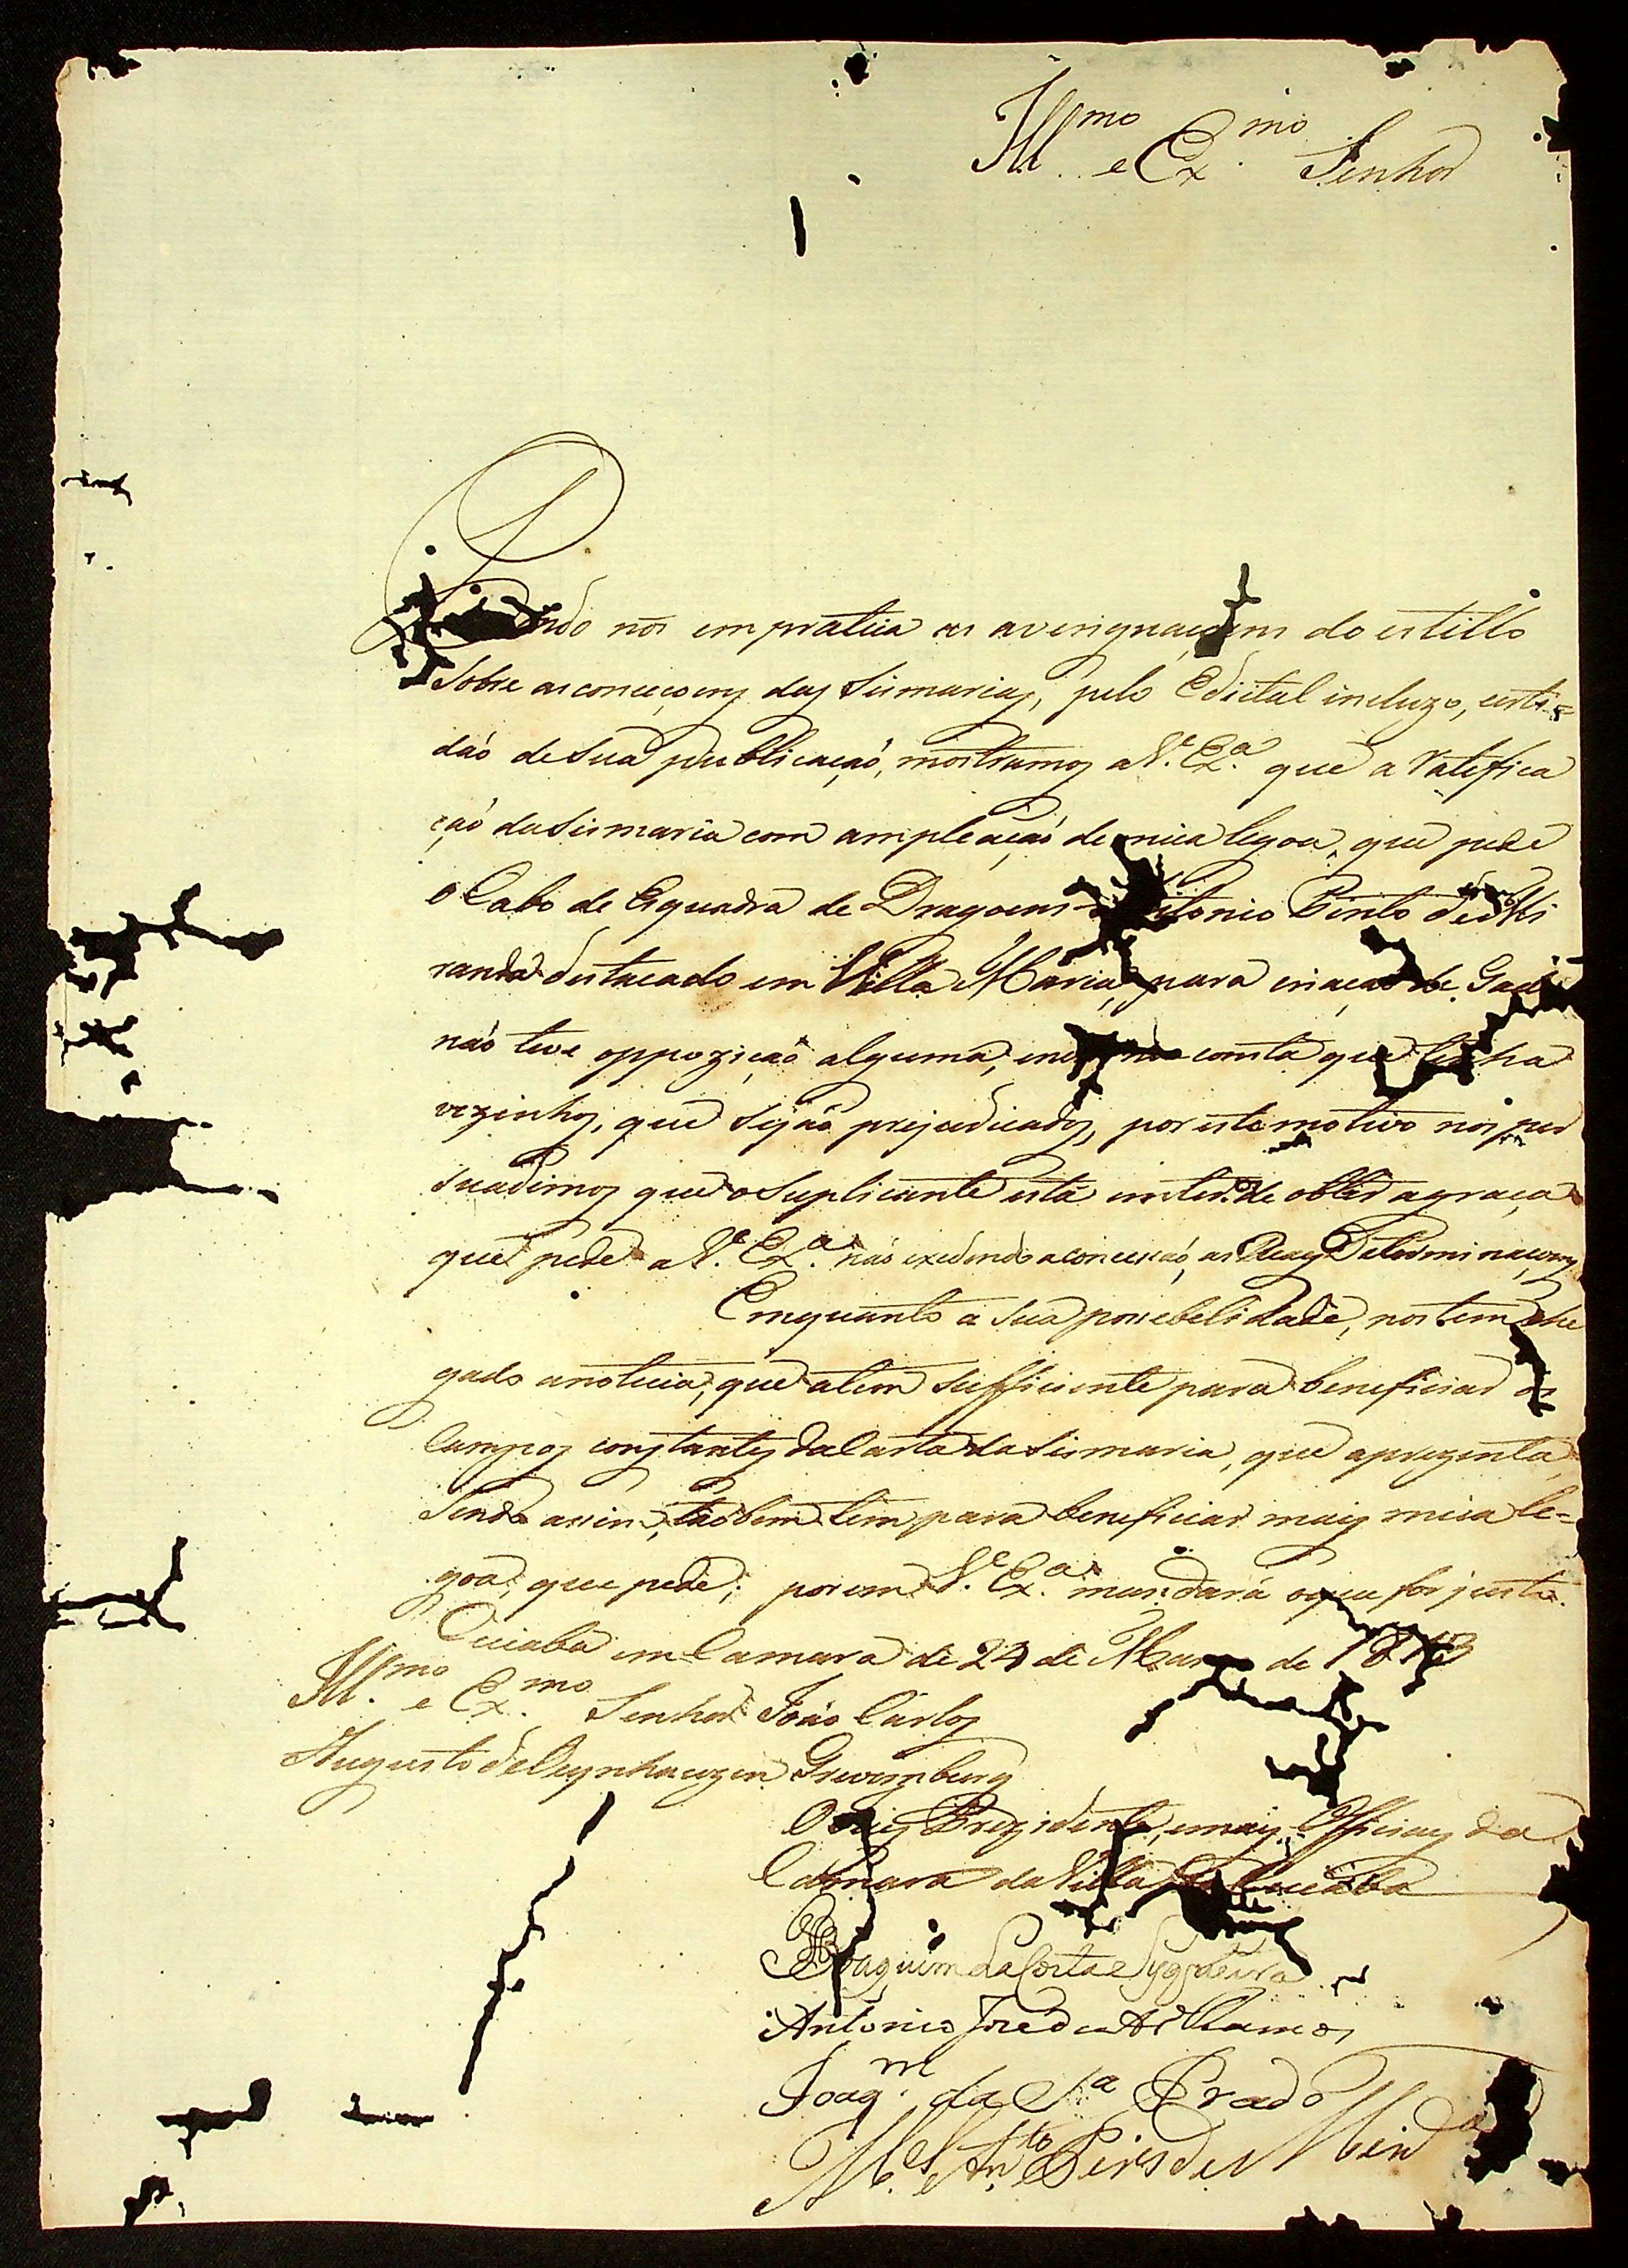 Ill.mo e Ex.mo Senhor
ndo nos em pratica as averiguaçoens do estillo
Sobre as conceçoens das Sismarias, pelo Edictal incluzo, certi=
dáo de Sua publicaçaó, mostramos a V.ª Ex.ª que a ratefica
çaó da Sismaria com ampleaçaó de meia legoa, que pede
o Cabo de Esquadra de Dragoens Antonio Pinto de Mi
randa destacado em Villa Maria, para criaçaó de Gado
naó teve oppoziçaó alguma, e nos consta que tenha
vezinhos, que sejaó prejudicados, por este motivo nos per
suadimos que o Suplicante está em ter.os de obter a graça
que pede a V.ª Ex.ª naó excedendo a concessaó, as Reaes Determinaçoens
Emquanto a Sua possebelidade, nos tem che
gado a noticia, que a tem sufficiente para beneficiar os
Campos constantes da Carta da Sismaria, que aprezenta,
Sendo assim, taóbem tem para beneficiar mais meia le=
goa, que pede; porem V.ª Ex.ª mandará o que for justo.
Cuiabá em Camara de 24 de Março de 1813
Ill.mo e Ex.mo Senhor Joáo Carlos
Augusto de Oeynhauzen Grevemburg
O Juiz Prezidente, e mais Officiaes da
Camara da Villa do Cuiabá
Joaquim da Costa e Syqueira
Antonio Joze de Ramos
Joaq.m da S.ª Prado
M.el An.to Pires de Mir.da